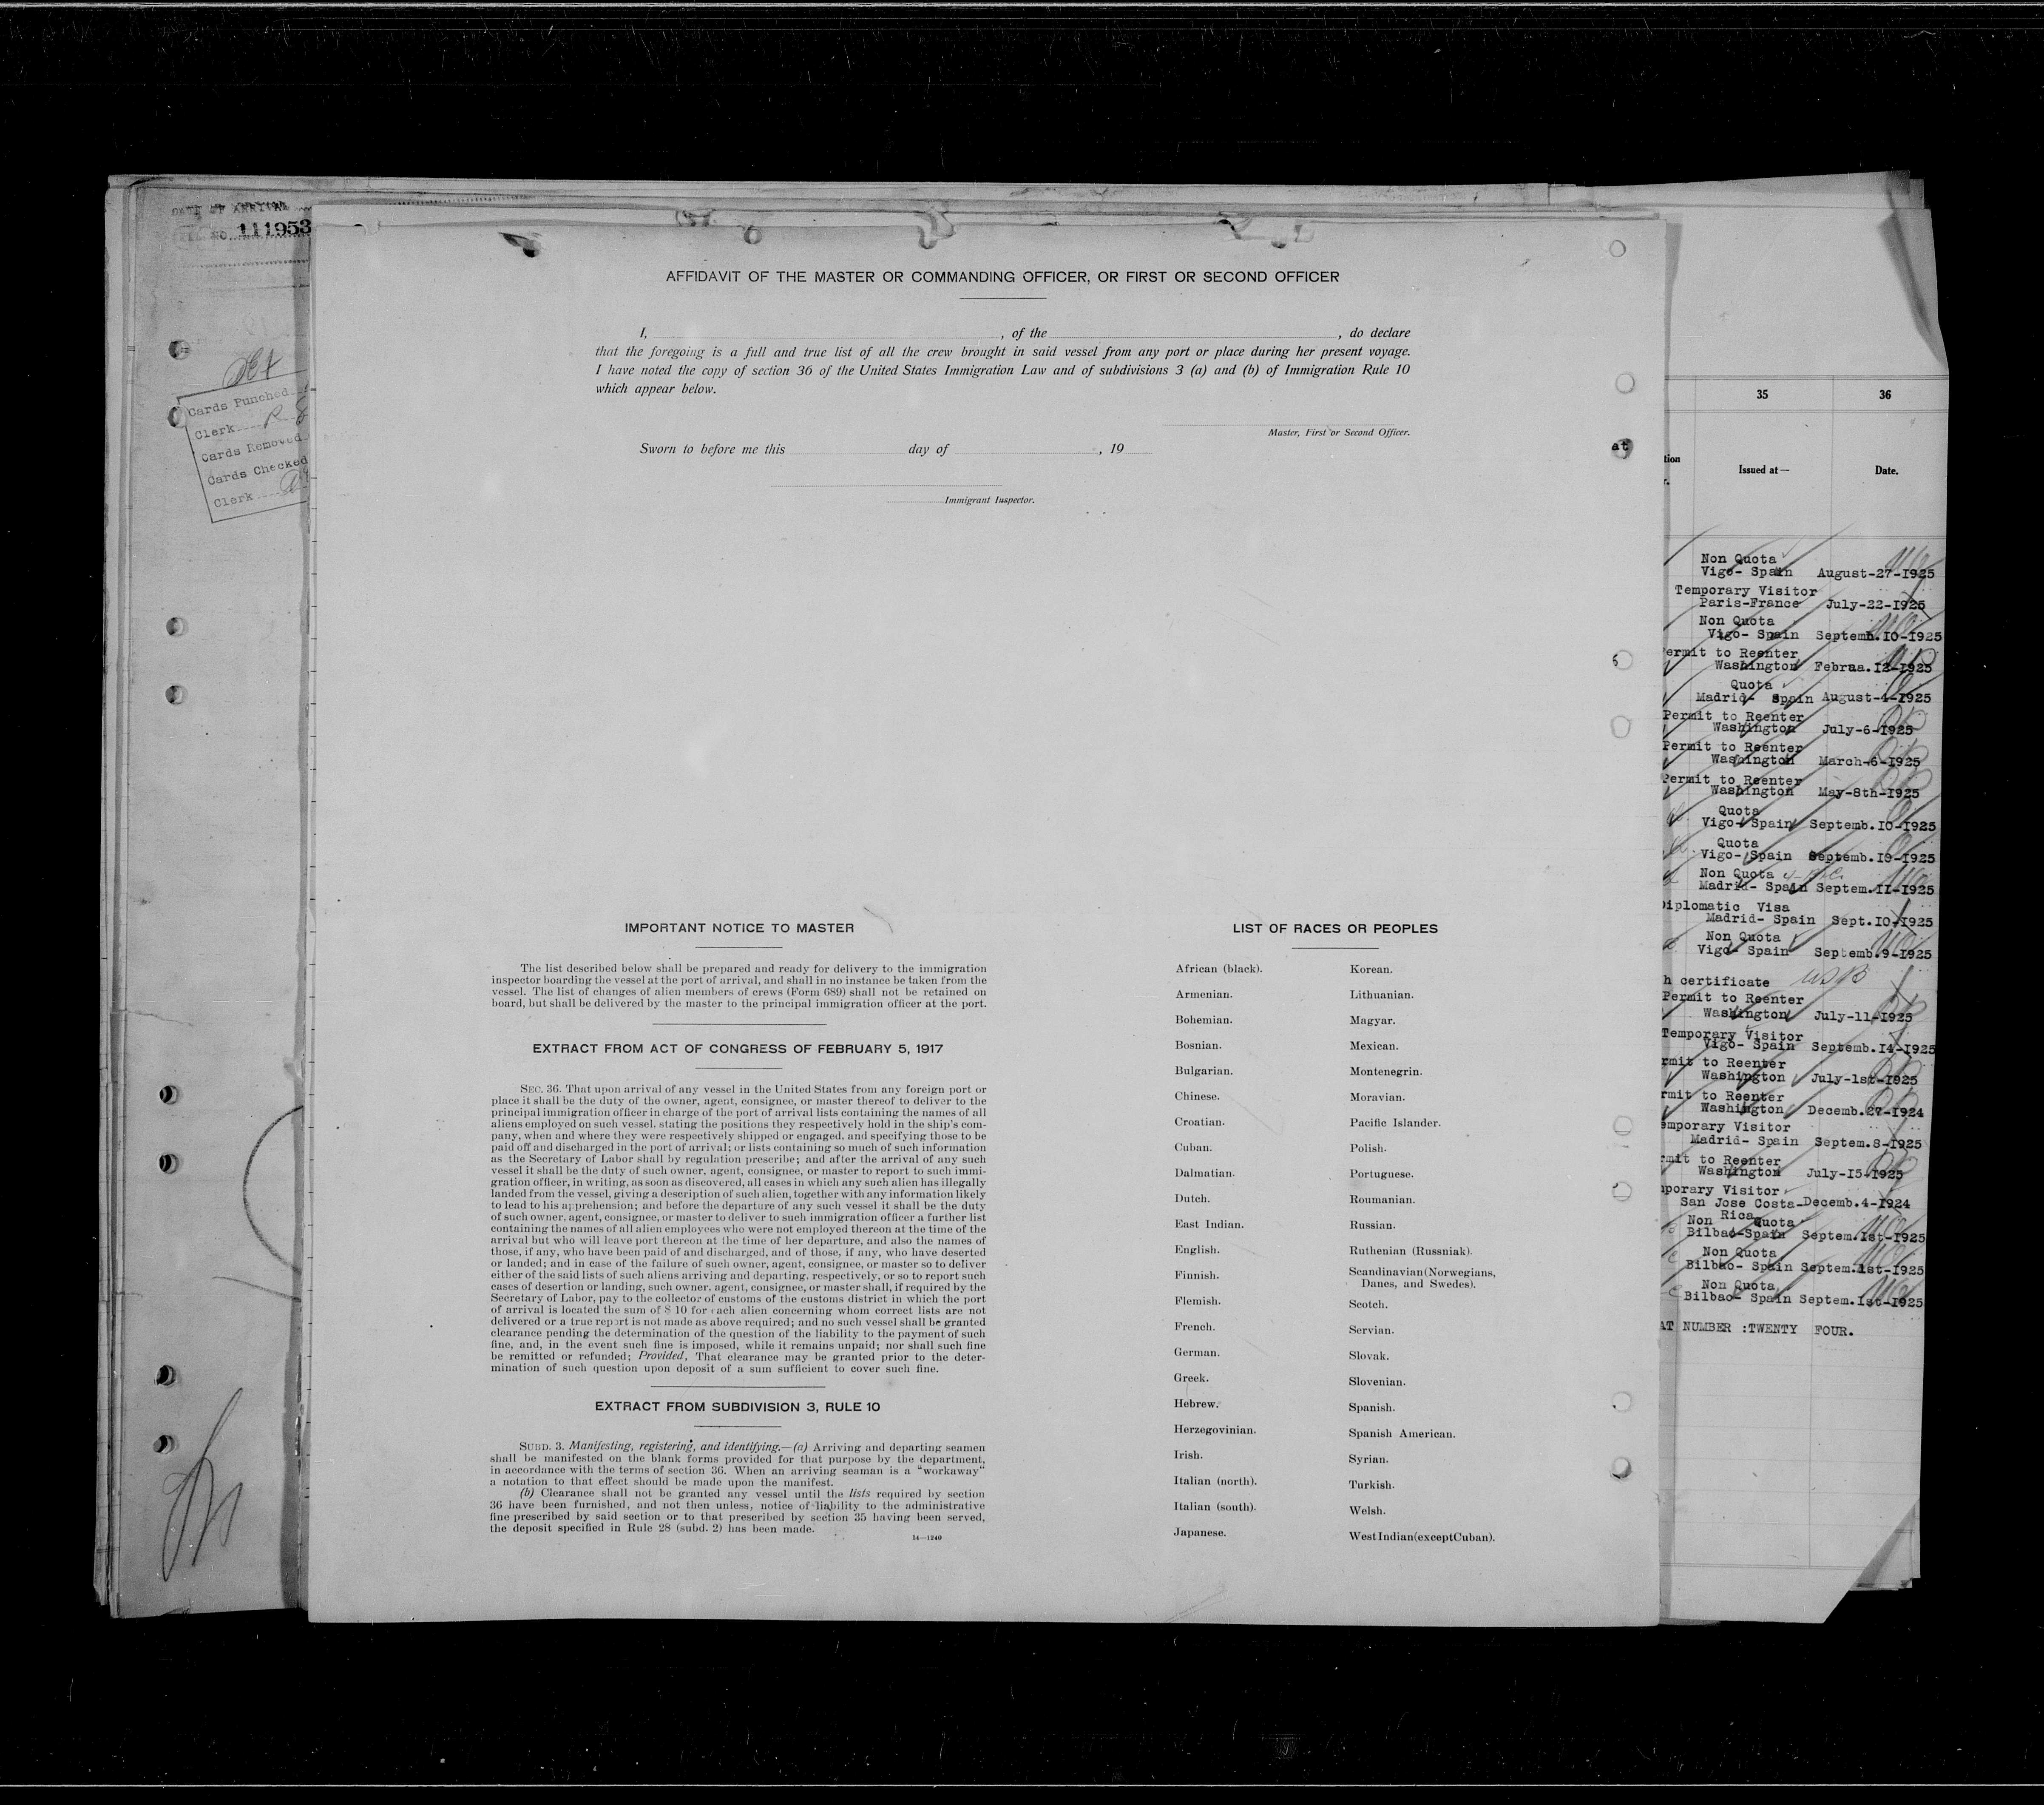 DATE OF ARRIVAL
NO. 111953
Cards Punched
Clerk
Cards Removed
Cards Checked
Clerk
AFFIDAVIT OF THE MASTER OR COMMANDING OFFICER, OR FIRST OR SECOND OFFICER
I, , of the , do declare
that the foregoing is a full and true list of all the crew brought in said vessel from any port or place during her present voyage.
I have noted the copy of section 36 of the United States Immigration Law and of subdivisions 3 (a) and (b) of Immigration Rule 10
which appear below.
Master, First or Second Officer.
Sworn to before me this day of , 19
Immigrant Inspector.
IMPORTANT NOTICE TO MASTER
The list described below shall be prepared and ready for delivery to the immigration
inspector boarding the vessel at the port of arrival, and shall in no instance be taken from the
vessel. The list of changes of alien members of crews (Form 689) shall not be retained on
board, but shall be delivered by the master to the principal immigration officer at the port.
EXTRACT FROM ACT OF CONGRESS OF FEBRUARY 5, 1917
SEC. 36. That upon arrival of any vessel in the United States from any foreign port or
place it shall be the duty of the owner, agent, consignee, or master thereof to deliver to the
principal immigration officer in charge of the port of arrival lists containing the names of all
aliens employed on such vessel, stating the positions they respectively hold in the ship's com-
pany, when and where they were respectively shipped or engaged, and specifying those to be
paid off and discharged in the port of arrival; or lists containing so much of such information
as the Secretary of Labor shall by regulation prescribe; and after the arrival of any such
vessel it shall be the duty of such owner, agent, consignee, or master to report to such immi-
gration officer, in writing, as soon as discovered, all cases in which any such alien has illegally
landed from the vessel, giving a description of such alien, together with any information likely
to lead to his apprehension; and before the departure of any such vessel it shall be the duty
of such owner, agent, consignee, or master to deliver to such immigration officer a further list
containing the names of all alien employees who were not employed thereon at the time of the
arrival but who will leave port thereon at the time of her departure, and also the names of
those, if any, who have been paid of and discharged, and of those, if any, who have deserted
or landed; and in case of the failure of such owner, agent, consignee, or master so to deliver
either of the said lists of such aliens arriving and departing, respectively, or so to report such
cases of desertion or landing, such owner, agent, consignee, or master shall, if required by the
Secretary of Labor, pay to the collector of customs of the customs district in which the port
of arrival is located the sum of $ 10 for each alien concerning whom correct lists are not
delivered or a true report is not made as above required; and no such vessel shall be granted
clearance pending the determination of the question of the liability to the payment of such
fine, and, in the event such fine is imposed, while it remains unpaid; nor shall such fine
be remitted or refunded; Provided, That clearance may be granted prior to the deter-
mination of such question upon deposit of a sum sufficient to cover such fine.
EXTRACT FROM SUBDIVISION 3, RULE 10
SUBD. 3. Manifesting, registering, and identifying.—(a) Arriving and departing seamen
shall be manifested on the blank forms provided for that purpose by the department,
in accordance with the terms of section 36. When an arriving seaman is a "workaway"
a notation to that effect should be made upon the manifest.
(b) Clearance shall not be granted any vessel until the lists required by section
36 have been furnished, and not then unless, notice of liability to the administrative
fine prescribed by said section or to that prescribed by section 35 having been served,
the deposit specified in Rule 28 (subd. 2) has been made.
14—1240
LIST OF RACES OR PEOPLES
African (black).
Armenian.
Bohemian.
Bosnian.
Bulgarian.
Chinese.
Croatian.
Cuban.
Dalmatian.
Dutch.
East Indian.
English.
Finnish.
Flemish.
French.
German.
Greek.
Hebrew.
Herzegovinian.
Irish.
Italian (north).
Italian (south).
Japanese.
Korean.
Lithuanian.
Magyar.
Mexican.
Montenegrin.
Moravian.
Pacific Islander.
Polish.
Portuguese.
Roumanian.
Russian.
Ruthenian (Russniak).
Scandinavian (Norwegians,
Danes, and Swedes).
Scotch.
Servian.
Slovak.
Slovenian.
Spanish.
Spanish American.
Syrian.
Turkish.
Welsh.
West Indian (except Cuban).
at
35 36
tion Issued at— Date.
Non Quota
Vigo- Spain August-27-1925
Temporary Visitor
Paris-France July-22-1925
Non Quota
Vigo- Spain Septemb.10-1925
ermit to Reenter
Washington Februa.12-1925
Quota
Madrid- Spain August-4-1925
Permit to Reenter
Washington July-6-1925
Permit to Reenter
Washington March-6-1925
Permit to Reenter
Washington May-8th-1925
Quota
Vigo- Spain Septemb.10-1925
Quota
Vigo- Spain Septemb.10-1925
Non Quota
Madrid- Spain Septem.11-1925
Diplomatic Visa
Madrid- Spain Sept.10-1925
Non Quota
Vigo- Spain Septemb.9-1925
h certificate
Permit to Reenter
Washington July-11-1925
Temporary Visitor
Vigo- Spain Septemb.14-1925
rmit to Reenter
Washington July-1st-1925
rmit to Reenter
Washington Decemb.27-1924
emporary Visitor
Madrid- Spain Septem.8-1925
rmit to Reenter
Washington July-15-1925
mporary Visitor
San Jose Costa-Decemb.4-1924
Rica
Non Quota
Bilbao-Spain Septem.1st-1925
Non Quota
Bilbao- Spain Septem.1st-1925
Non Quota
Bilbao- Spain Septem.1st-1925
AT NUMBER :TWENTY FOUR.